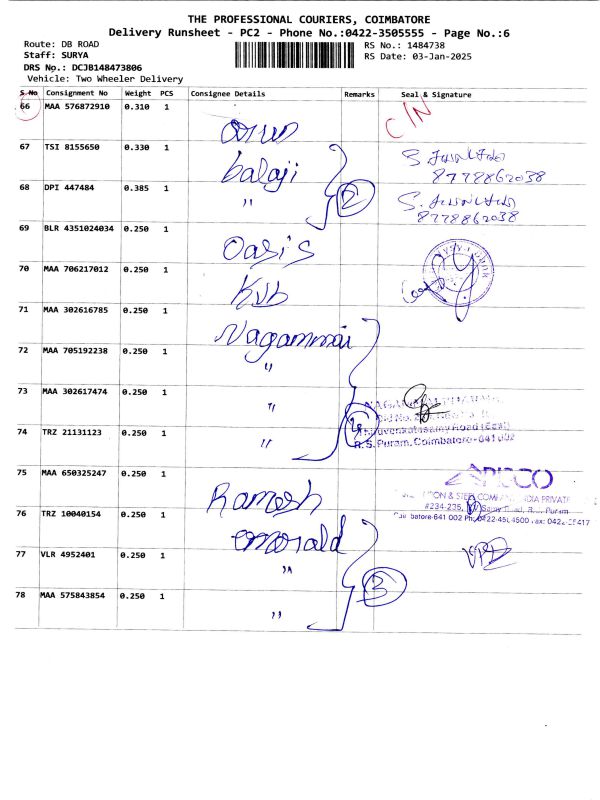 THE PROFESSIONAL COURIERS, COIMBATORE
Delivery Runsheet - PC2 - Phone No.:0422-3505555 - Page No.:6
Route: DB ROAD
RS No.: 1484738
Staff: SURYA
RS Date: 03-Jan-2025
DRS No.: DCJB148473806
Vehicle: Two Wheeler Delivery
S.No Consignment No Weight PCS Consignee Details Remarks Seal & Signature
66 MAA 576872910 0.310 1 C/N
67 TSI 8155650 0.330 1 balaji
8778862038
68 DPI 447484 0.385 1 " 2
8778862038
69 BLR 4351024034 0.250 1 Oasis
70 MAA 706217012 0.250 1 KVB
71 MAA 302616785 0.250 1 Nagammai
72 MAA 705192238 0.250 1 "
73 MAA 302617474 0.250 1 "
74 TRZ 21131123 0.250 1 " 4
Thiruvenkatasamy Road (East)
R.S. Puram, Coimbatore-641 002
75 MAA 650325247 0.250 1 Ramesh
& STEEL COMPANY INDIA PRIVATE
#234-235,
76 TRZ 10040154 0.250 1 emerald
77 VLR 4952401 0.250 1 "
78 MAA 575843854 0.250 1 " 3